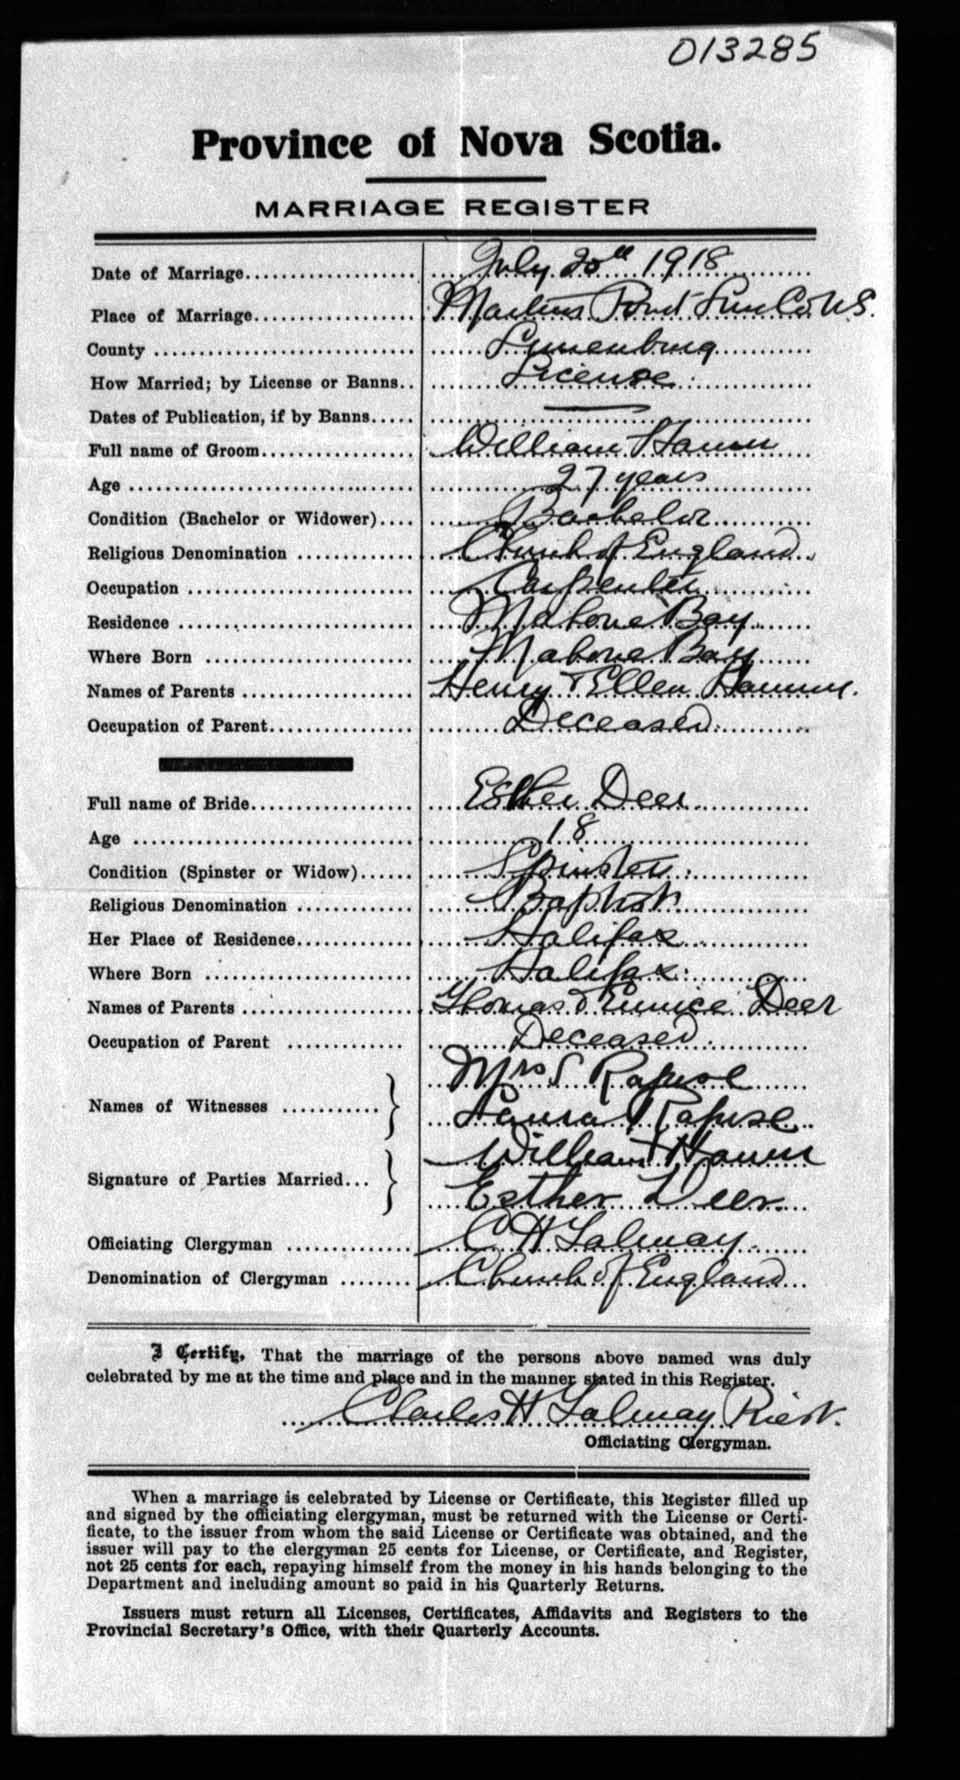 013285
Province of Nova Scotia.
MARRIAGE REGISTER
Date of Marriage July 20th 1918
Place of Marriage Martins Point Lun Co. N.S.
County Lunenburg
How Married; by License or Banns License
Dates of Publication, if by Banns —
Full name of Groom William Hamm
Age 27 years
Condition (Bachelor or Widower) Bachelor
Religious Denomination Church of England
Occupation Carpenter
Residence Mahone Bay
Where Born Mahone Bay
Names of Parents Henry & Ellen Hamm
Occupation of Parent Deceased
Full name of Bride Esther Deer
Age 18
Condition (Spinster or Widow) Spinster
Religious Denomination Baptist
Her Place of Residence Halifax
Where Born Halifax
Names of Parents Thomas & Eunice Deer
Occupation of Parent Deceased
Names of Witnesses Mrs S Rafuse
Laura Rafuse
Signature of Parties Married William Hamm
Esther Deer
Officiating Clergyman C H Talmay
Denomination of Clergyman Church of England
I Certify, That the marriage of the persons above named was duly
celebrated by me at the time and place and in the manner stated in this Register.
Charles H Talmay Priest.
Officiating Clergyman.
When a marriage is celebrated by License or Certificate, this Register filled up
and signed by the officiating clergyman, must be returned with the License or Certi-
ficate, to the issuer from whom the said License or Certificate was obtained, and the
issuer will pay to the clergyman 25 cents for License, or Certificate, and Register,
not 25 cents for each, repaying himself from the money in his hands belonging to the
Department and including amount so paid in his Quarterly Returns.
Issuers must return all Licenses, Certificates, Affidavits and Registers to the
Provincial Secretary's Office, with their Quarterly Accounts.